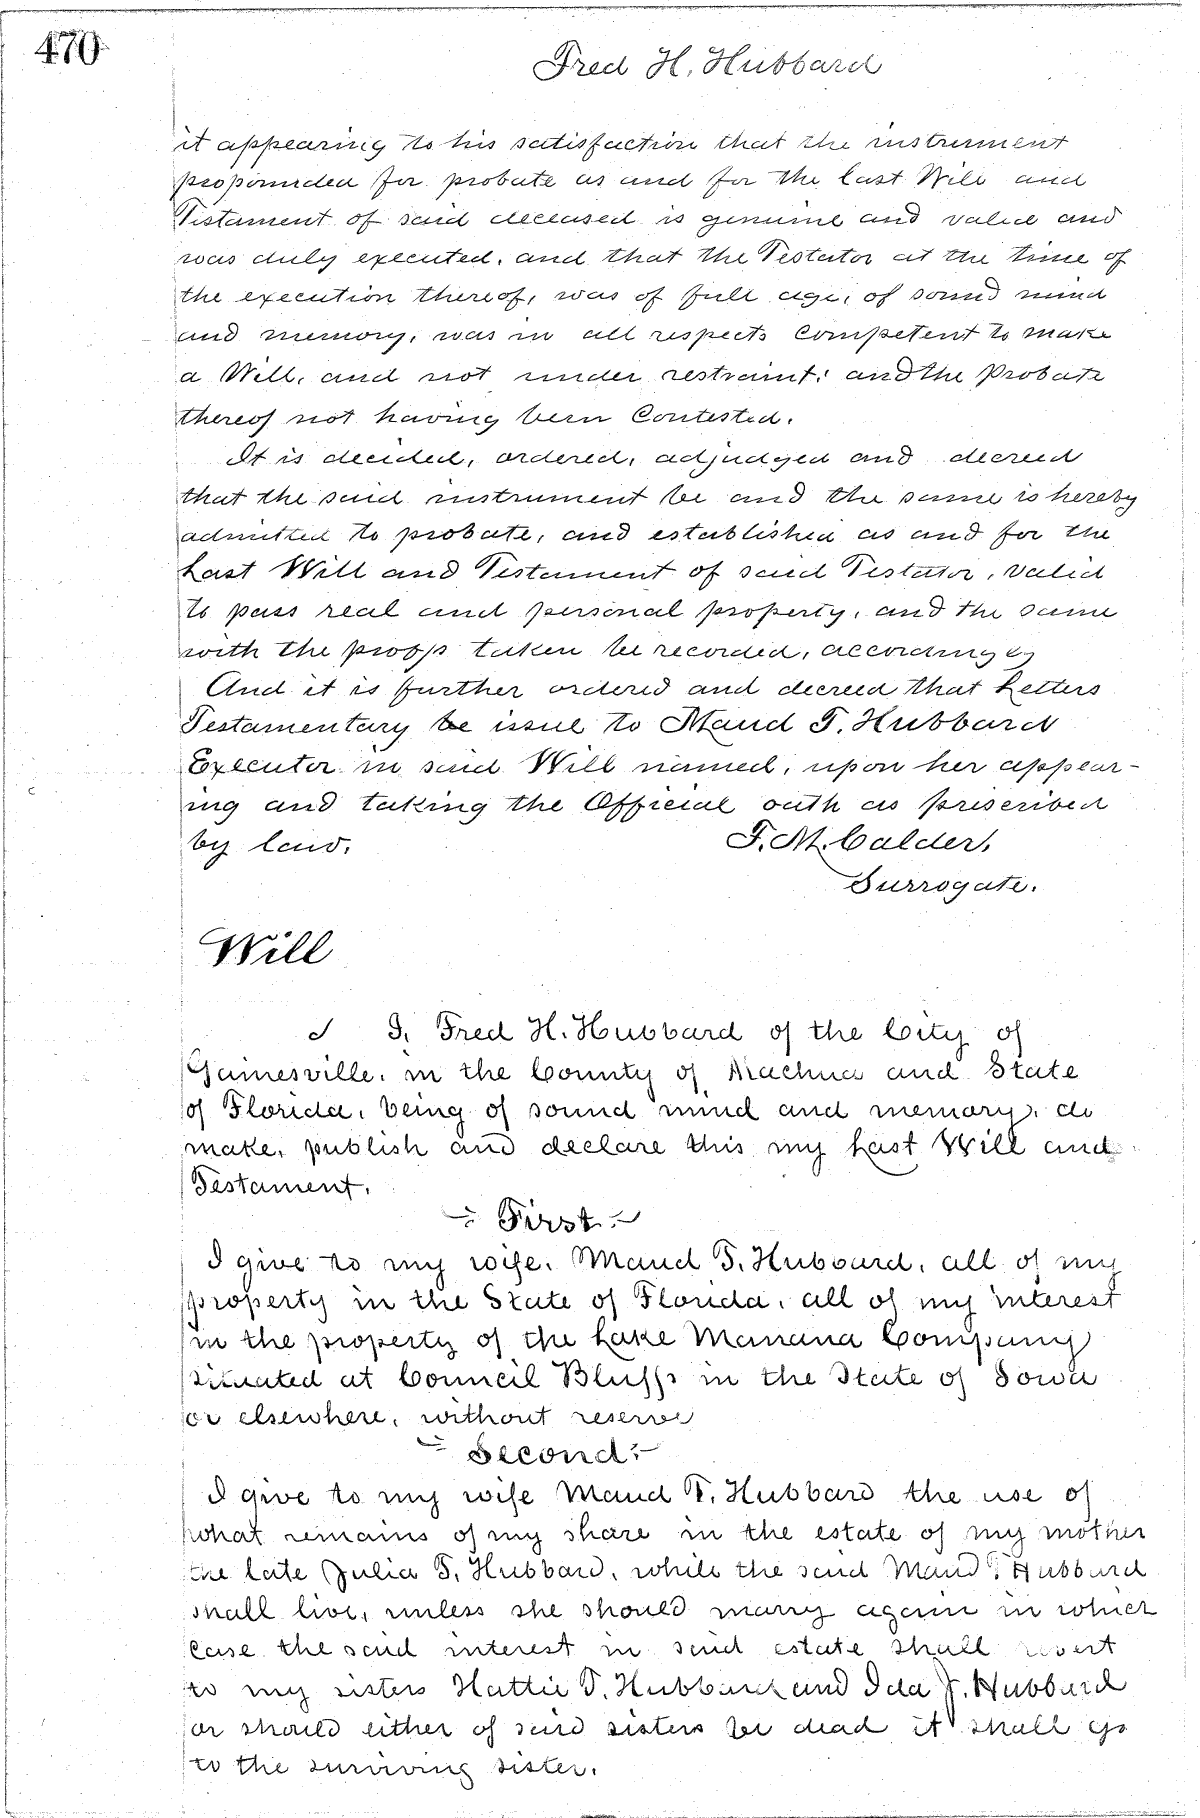 470
Fred H. Hubbard
it appearing to his satisfaction that the instrument
propounded for probate as and for the last Will and
Testament of said deceased is genuine and valid and
was duly executed, and that the Testator at the time of
the execution thereof, was of full age, of sound mind
and memory, was in all respects Competent to make
a Will, and not under restraint; and the Probate
thereof not having been Contested.
It is decided, ordered, adjudged and decreed
that the said instrument be and the same is hereby
admitted to probate, and established as and for the
Last Will and Testament of said Testator, valid
to pass real and personal property, and the same
with the proofs taken be recorded, accordingly
And it is further ordered and decreed that Letters
Testamentary be issue to Maud T. Hubbard
Executor in said Will named, upon her appear-
ing and taking the Official oath as prescribed
by law.
F. M. Calder,
Surrogate.
Will
I, Fred H. Hubbard of the City of
Gainesville, in the County of Alachua and State
of Florida, being of sound mind and memory, do
make, publish and declare this my Last Will and
Testament.
First
I give to my wife, Maud T. Hubbard, all of my
property in the State of Florida, all of my interest
in the property of the Lake Manana Company
situated at Council Bluffs in the State of Iowa
or elsewhere, without reserve
Second:-
I give to my wife Maud T. Hubbard the use of
what remains of my share in the estate of my mother
the late Julia T. Hubbard, while the said Maud T Hubbard
shall live, unless she should marry again in which
case the said interest in said estate shall revert
to my sisters Hattie T. Hubbard and Ida J. Hubbard
or should either of said sisters be dead it shall go
to the surviving sister.